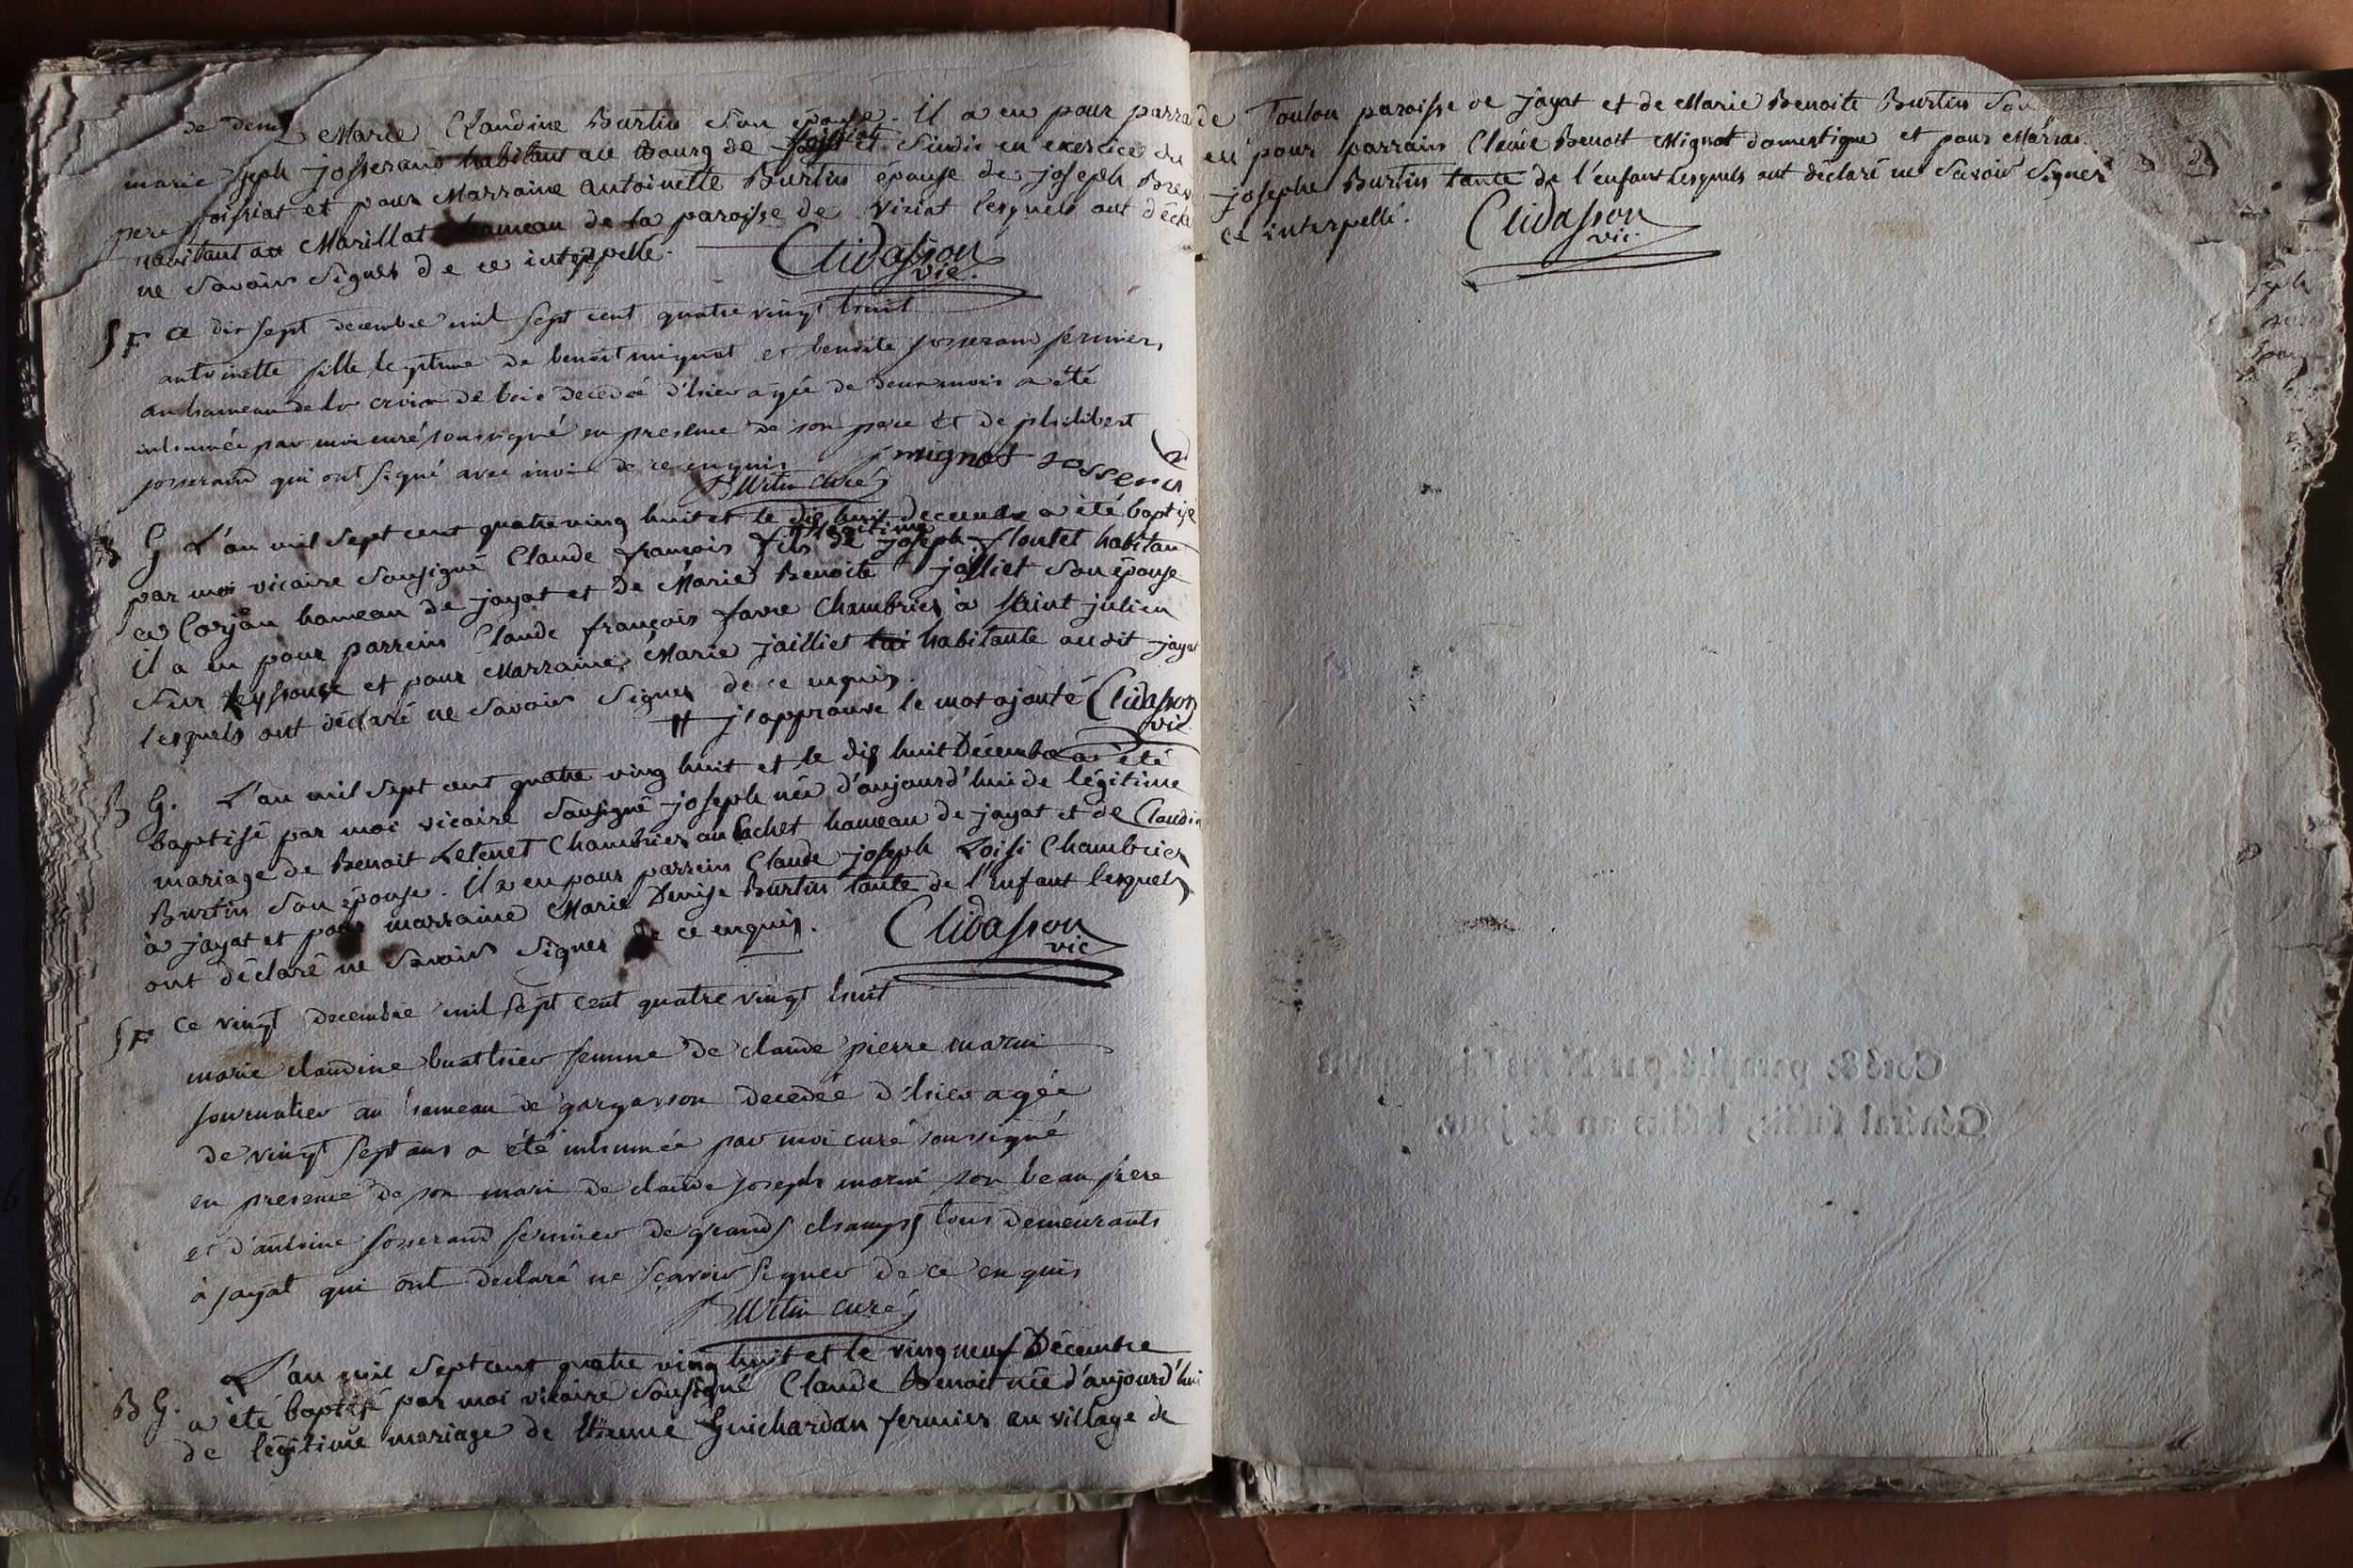 de Marie Claudine Burtin son épouse. Il a eu pour parra
marie joseph josserand habitant au Bourg de foissiat sindic en exercice du
foissiat et pour Marraine antoinette Burtin épouse de joseph
habitant au Marillat hameau de la paroisse de viriat lesquels ont décla
ne savoir signer de ce interpellé.
Clidasson
vic.
SF ce dix sept decembre mil sept cent quatre vingt huit
antoinette fille legitime de benoit mignot et benoite josserand fermier,
au hameau de la croix de bois decedée d'hier agée de deux mois a été
inhumée par moi curé soussigné en presence de son pere et de philibert
josserand qui ont signé avec moi de ce enquis j mignot
Burtin curé
B G L'an mil sept cent quatre ving huit et le dis huit decembre a été baptisé
légitime
par moi vicaire sousigné Claude françois fils de joseph floutet habitan
a Corjan hameau de jayat et de Marie Benoite jalliet son épouse
il a eu pour parrein Claude françois favre Chambrier à saint julien
sur Reyssouse et pour Marraine Marie jailliet habitante audit jayat
lesquels ont déclaré ne savoir signer de ce enquis.
# j'approuve le mot ajouté Clidasson
vic.
B G. L'an mil sept cent quatre ving huit et le dis huit Décembre a été
baptisé par moi vicaire sousigné joseph née d'aujourd'hui de légitime
mariage de Benoit Letenet Chambrier au Cachet hameau de jayat et de Claudi
Burtin son épouse. Il a eu pour parrein Claude joseph Loisi Chambrier
à jayat et pour marraine Marie Denise Burtin tante de l'enfant lesquels
ont déclaré ne savoir signer de ce enquis.
Clidasson
vic
SF Ce vingt decembre mil sept cent quatre vingt huit
marie claudine buathier femme de claude pierre marin
journalier au hameau de gargasson decedée d'hier agée
de vingt sept ans a été inhumée par moi curé soussigné
en presence de son mari de claude joseph marin son beau frere
et d'antoine josserand fermier de grands champs tous demeurants
à jayat qui ont declaré ne sçavoir signer de ce enquis
Burtin curé
L'an mil sept cent quatre ving huit et le ving neuf Décembre
B G. a été baptisé par moi vicaire sousigné Claude Benoit née d'aujourd'hui
de légitime mariage de Etienne Guichardan fermier au village de
de Toulon paroisse de jayat et de Marie Benoite Burtin son
eu pour parrain Claude Benoit Mignot domestique et pour Marrai
josephe Burtin tante de l'enfant lesquels ont déclaré ne savoir signer
ce interpellé.
Clidasson
vic.